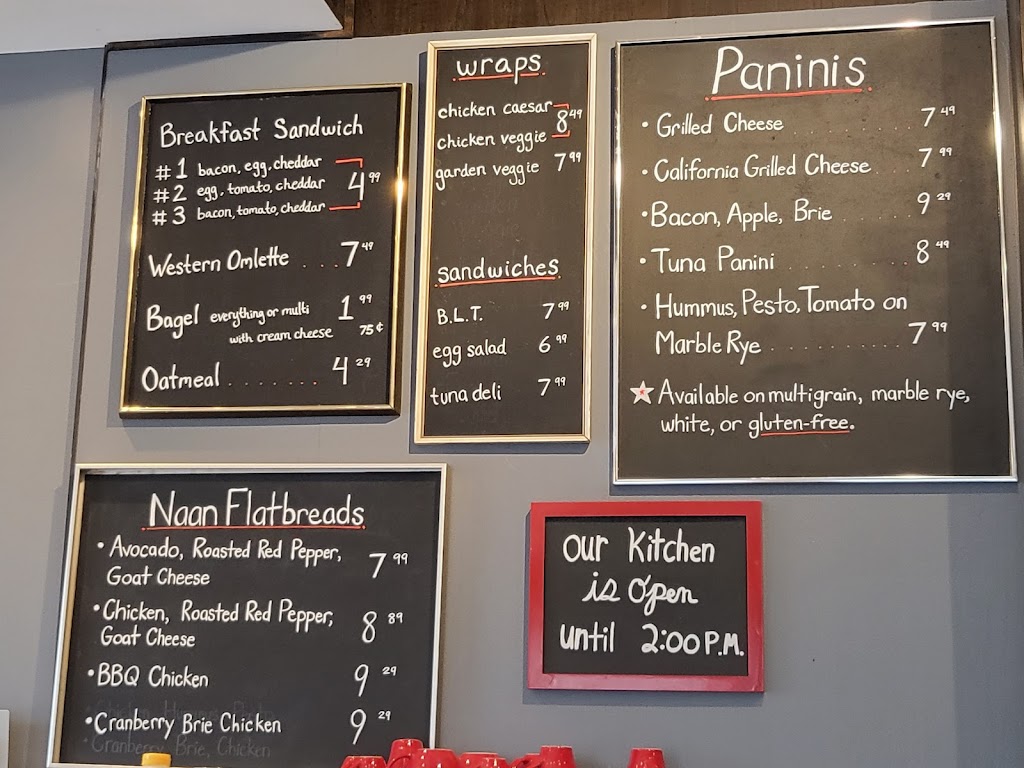 Breakfast Sandwich
#1 bacon, egg, cheddar
#2 egg, tomato, cheddar 4.99
#3 bacon, tomato, cheddar
Western Omlette .... 7.49
Bagel everything or multi 1.99
with cream cheese 75¢
Oatmeal ....... 4.29
wraps
chicken caesar
8.49
chicken veggie
garden veggie 7.99
sandwiches
B.L.T. 7.99
egg salad 6.99
tuna deli 7.99
Paninis
• Grilled Cheese 7.49
• California Grilled Cheese 7.99
• Bacon, Apple, Brie 9.29
• Tuna Panini 8.49
• Hummus, Pesto, Tomato on
Marble Rye 7.99
☆ Available on multigrain, marble rye,
white, or gluten-free.
Naan Flatbreads
• Avocado, Roasted Red Pepper,
Goat Cheese 7.99
• Chicken, Roasted Red Pepper,
Goat Cheese 8.89
• BBQ Chicken 9.29
• Cranberry Brie Chicken 9.29
• Cranberry Brie, Chicken
our Kitchen
is Open
until 2:00 P.M.